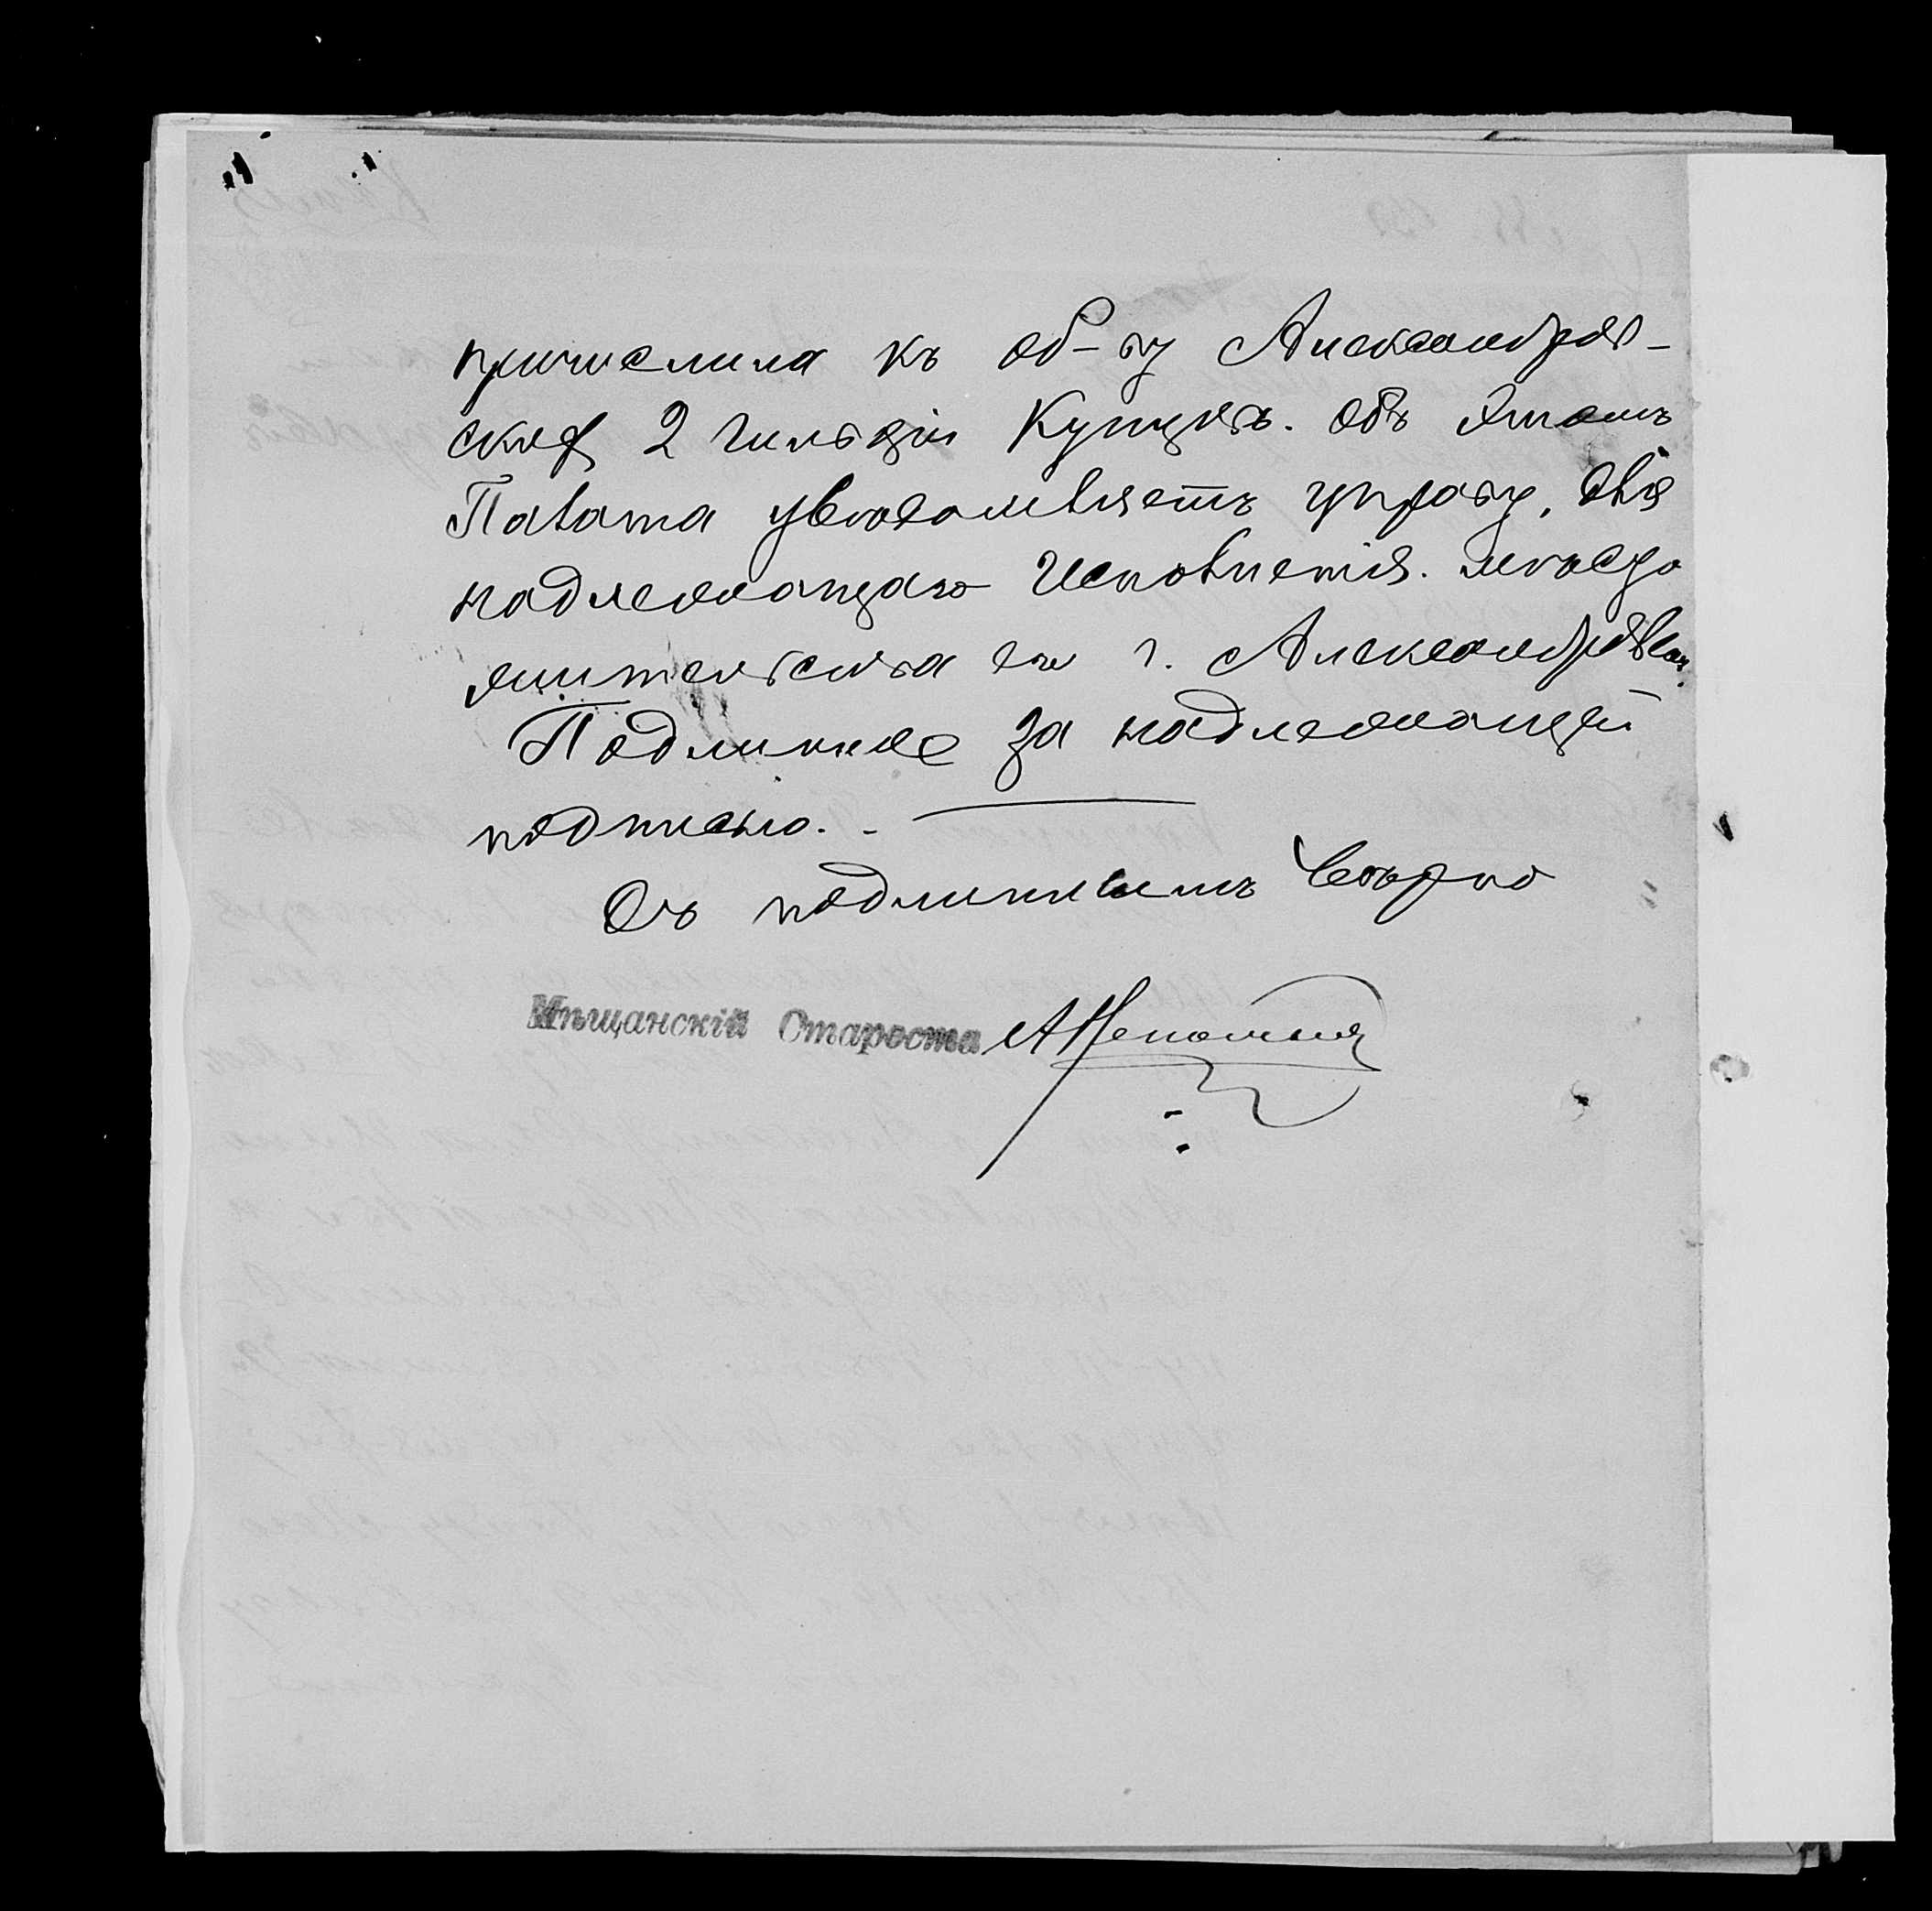 причислила къ об-ву Александров-
ской 2 гильдіи Купцовъ. Объ этомъ
Палата увѣдомляетъ управу, для
надлежащаго исполненія. Мѣсто
жительства въ г. Александровск.
Подлинное за надлежащей
подписью. -
Съ подлиннымъ вѣрно
Мѣщанскій Староста